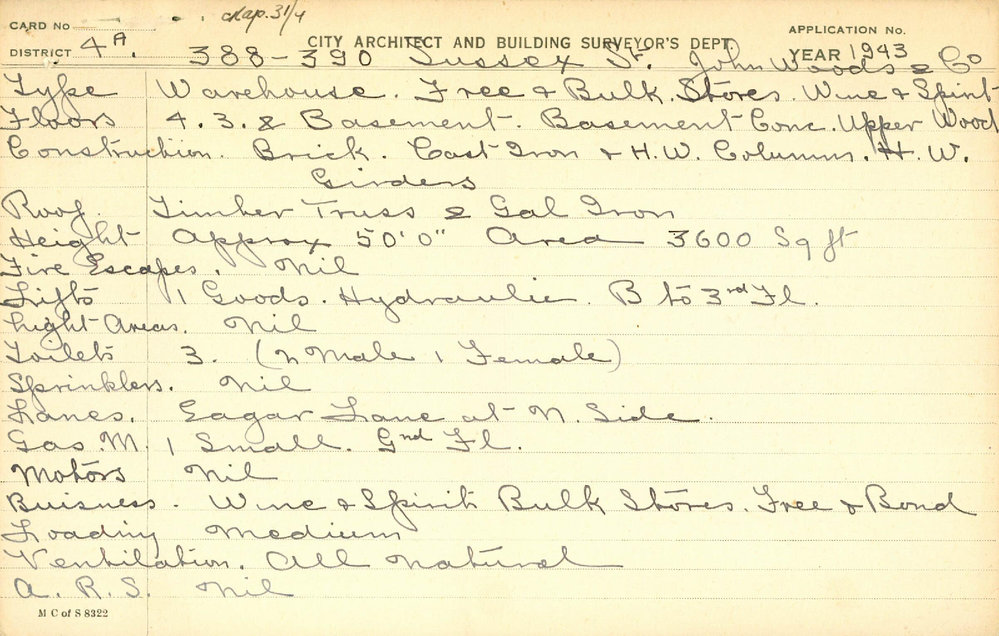 CARD No. Map. 31/4 APPLICATION No.
DISTRICT 4A. CITY ARCHITECT AND BUILDING SURVEYOR'S DEPT. YEAR 1943
388-390 Sussex St. John Woods & Co
Type Warehouse. Free & Bulk. Stores. Wine & Spirit
Floors 4. 3. & Basement. Basement Conc. Upper Wood
Construction. Brick. Cast Iron & H.W. Columns. H.W.
Girders
Roof. Timber Truss & Gal Iron
Height Approx 50'0" Area 3600 Sq ft
Fire Escapes. Nil
Lifts 1 Goods. Hydraulic. B to 3rd Fl.
Light Areas. Nil
Toilets 3. (2 Male 1 Female)
Sprinklers. Nil
Lanes. Eagar Lane at N. Side.
Gas. M. 1 Small. Gnd Fl.
Motors Nil
Buisness. Wine & Spirit Bulk Stores. Free & Bond
Loading Medium
Ventilation. All Natural
A. R. S. Nil
M C of S 8322